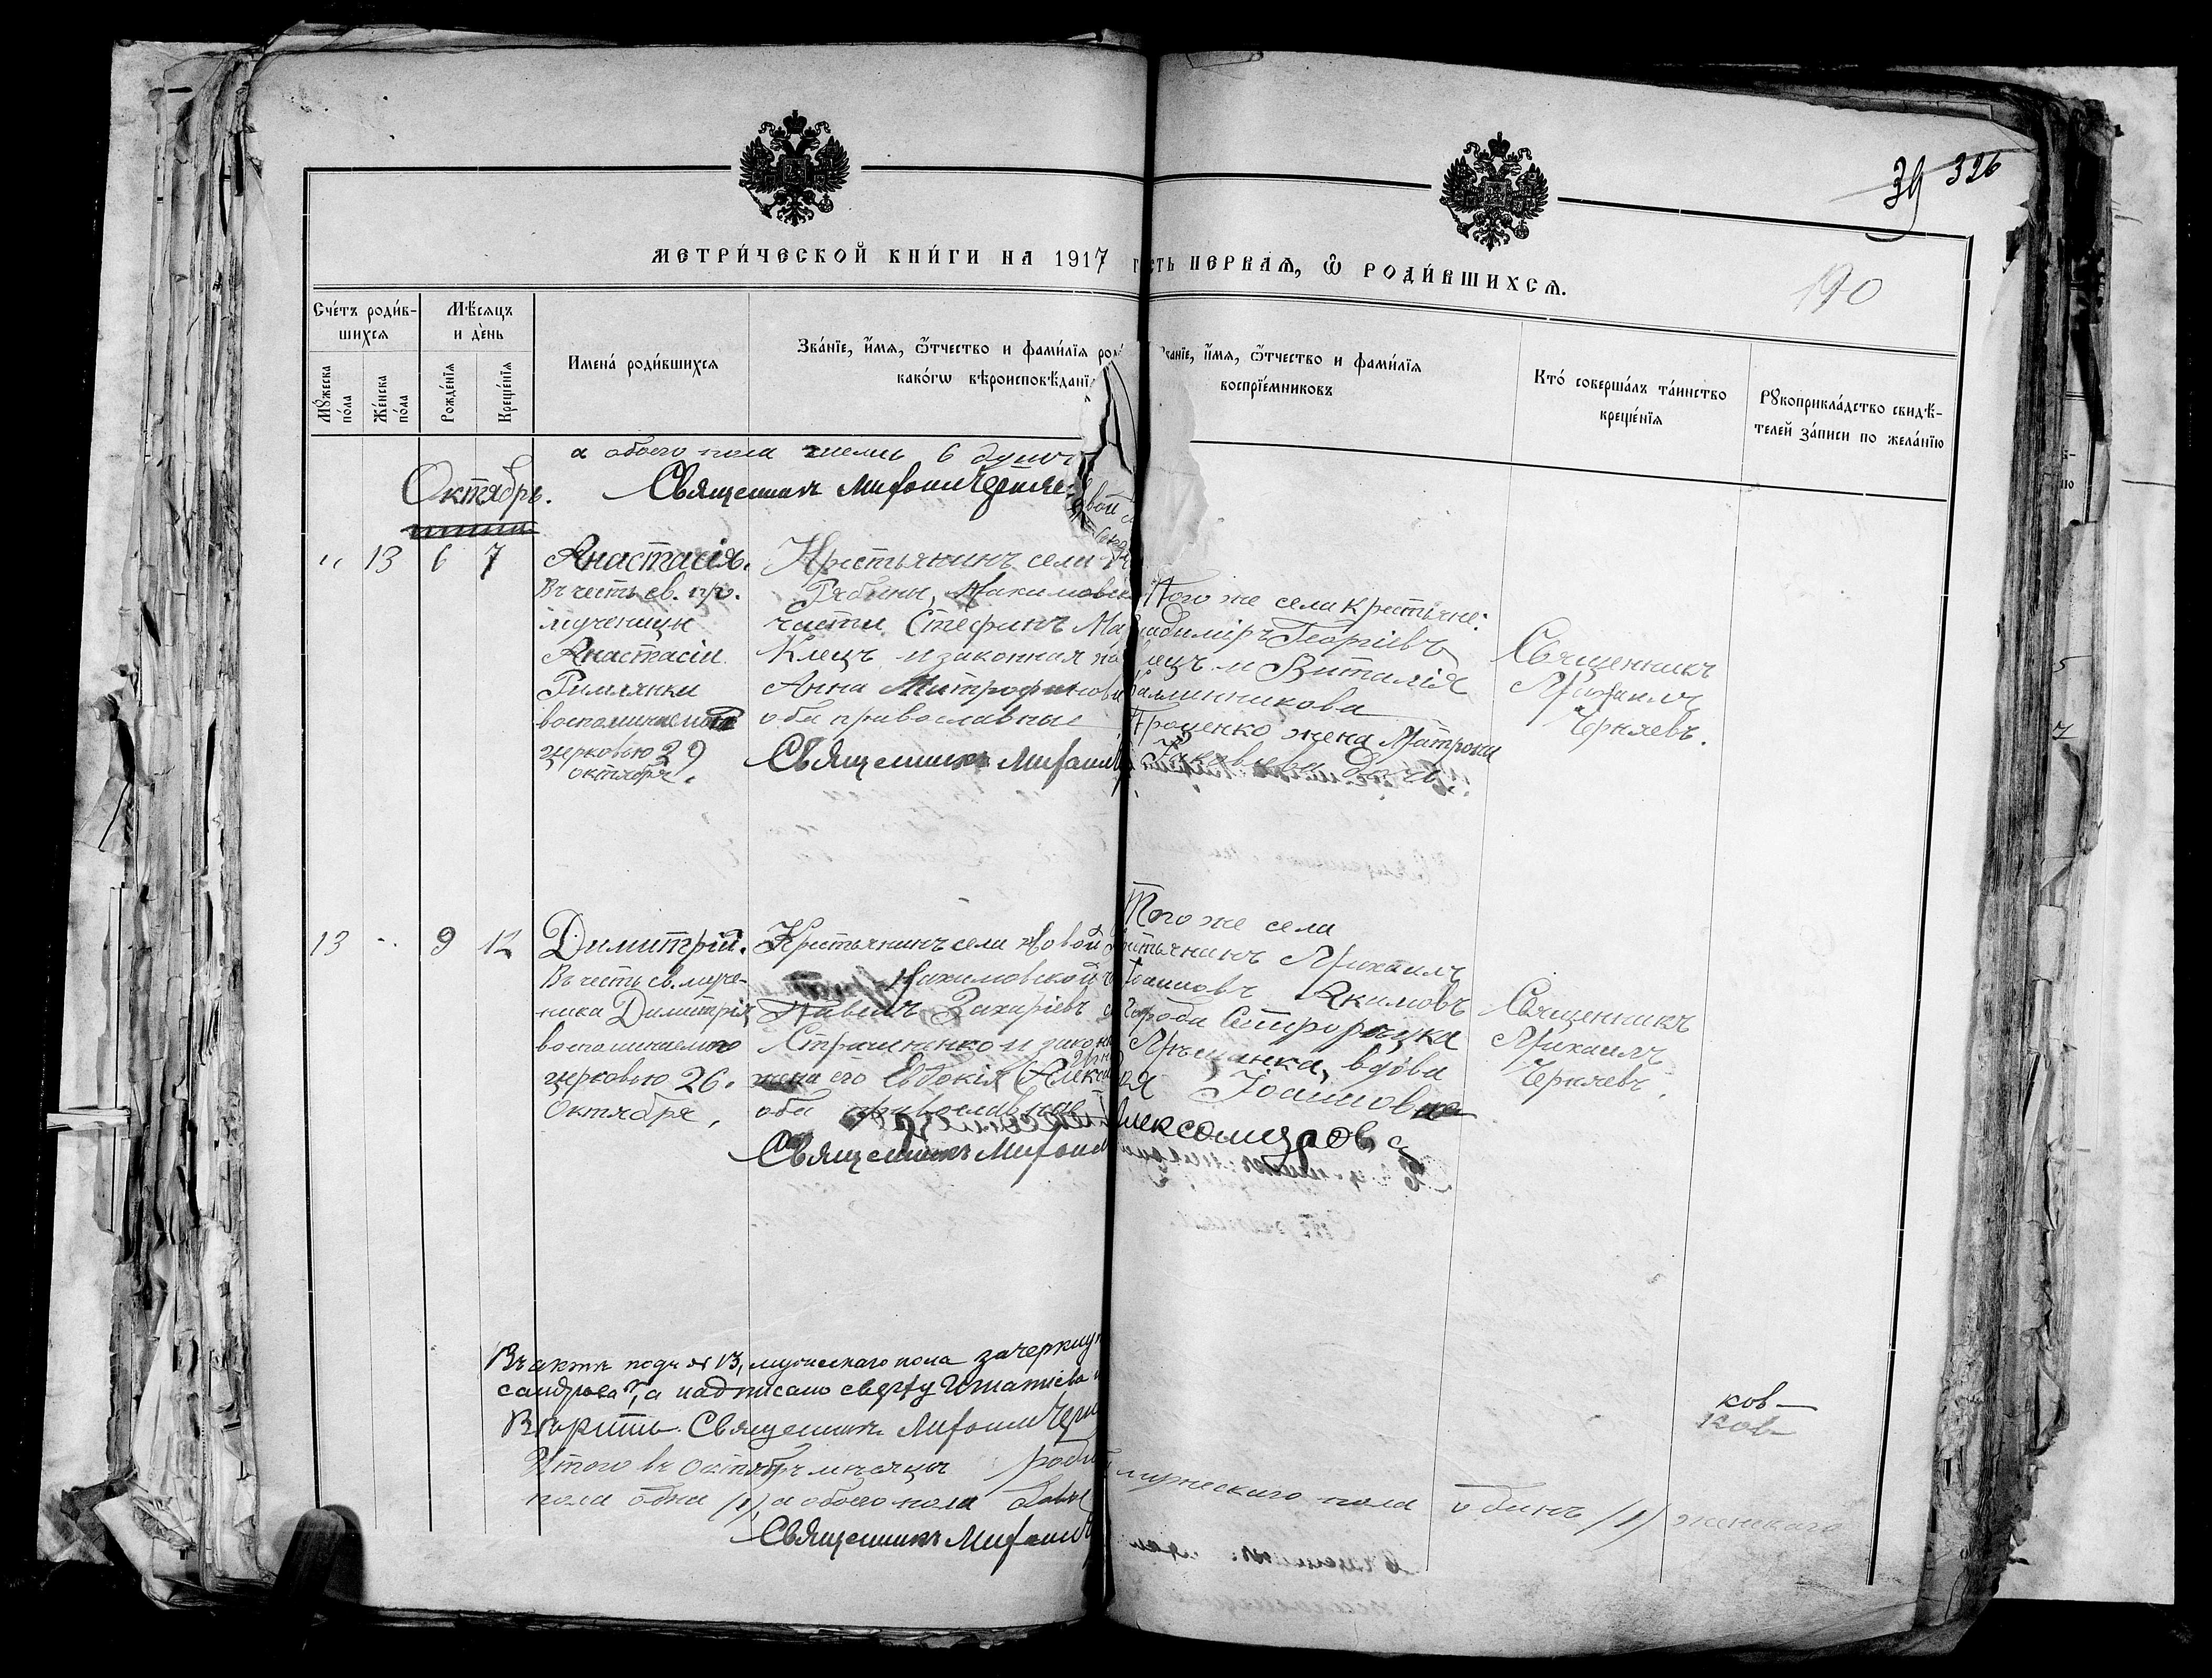 39 326
190
МЕТРИ́ЧЕСКОЙ КНИ́ГИ НА 1917
СТЬ ПЕРВАЯ, Ѿ РОДИ́ВШИХСЯ.
Сче́тъ роди́в-
шихся
Мѣсяцъ
и де́нь
Имена́ роди́вшихся
Зва́нїе, и́мя, ѻ́тчество и фами́лїя
како́гѡ вѣроисповѣ́данї
Мꙋ́жеска
по́ла
Же́нска
по́ла
Рожде́нїя
Креще́нїя
и́мя, ѻ́тчество и фами́лїя
воспрїе́мниковъ
Кто́ соверша́лъ та́инство
креще́нїя
Рꙋкоприкла́дство свидѣ́-
телей за́писи по жела́нїю
а обоего пола шесть 6 душъ
Октябрь.
Священникъ Михаилъ Черняе
" 13 6 7
Анастасія.
Въ честь св. пр.
мученицы
Анастасіи
Римлянки
воспоминаемой
церковью 29
октября.
Крестьянинъ села
Рябины, Якимовск
части Стефанъ Ма
Клецъ и законная
Анна Митрофанов
оба православные
Священникъ Михаилъ
Того же села крестьяне:
Владиміръ Георгіевъ
лецъ и Виталія
Калинникова
Проценко жена Матрона
Яковлева дочь
Священникъ
Михаилъ
Черняевъ.
13 " 9 12
Димитрій.
Въ честь св. муче-
ника Димитрія,
воспоминаемаго
церковью 26.
Октября,
Крестьянинъ села Новой
Якимовской
Павелъ Захаріевъ
Страшненко и закон
жена его Евдокія Алекса
оба православные
Священникъ Михаилъ
Того же села
крестьянинъ Михаилъ
Іоанновъ Якимовъ
города
Мѣщанка, вдова
Іоаннова
Александрова
Священникъ
Михаилъ
Черняевъ.
Въ актѣ подъ № 13, мужескаго пола зачеркну
сандрова", а надписано сверху Игнатіева
Вѣрить. Священникъ Михаилъ Черн
Итого въ октябрѣ мѣсяцѣ роди
мужескаго пола одинъ /1/ женскаго
пола одна /1/, а обоего пола двое
Священникъ Михаилъ
ков-
ков-